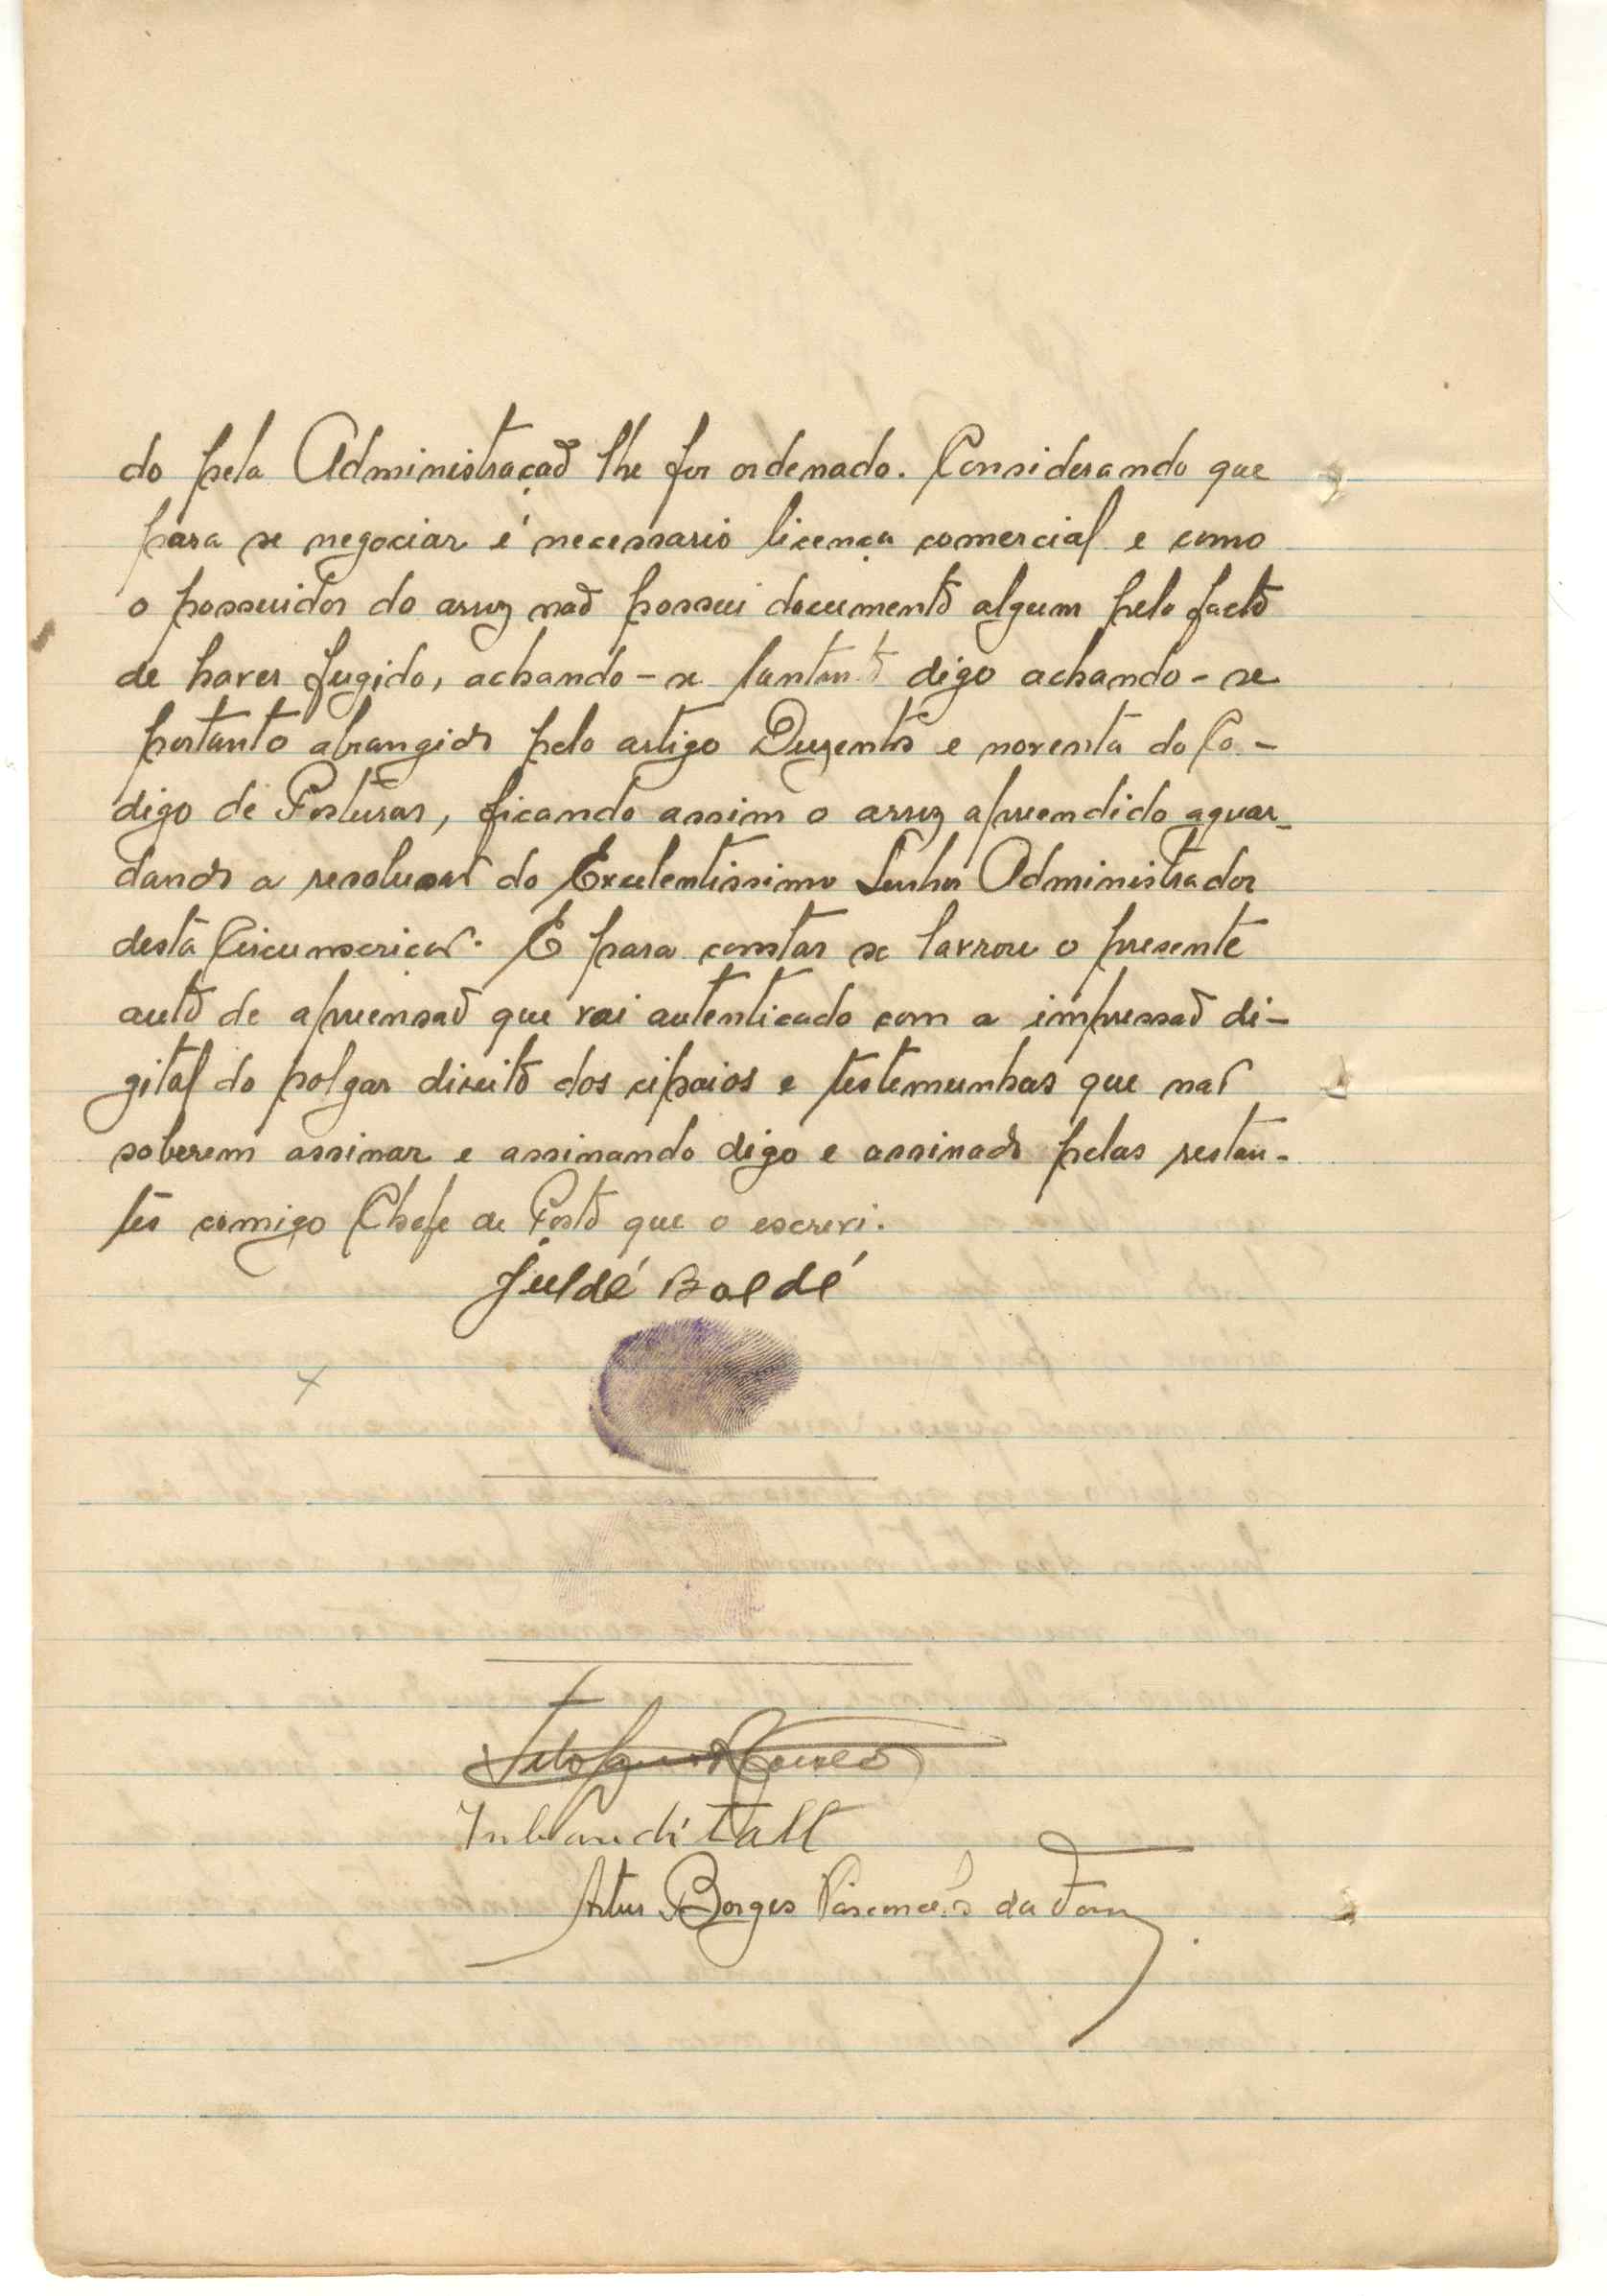 do pela Administração lhe for ordenado. Considerando que
para se negociar é necessario licença comercial e como
o possuidor do arroz não possui documento algum pelo facto
de haver fugido, achando-se digo achando-se
portanto abrangido pelo artigo Duzentos e noventa do Co-
digo de Posturas, ficando assim o arroz apreendido aguar-
dando a resolução do Excelentissimo Senhor Administrador
desta Circunscrição. E para constar se lavrou o presente
auto de apreensão que vai autenticado com a impressão di-
gital do polgar direito dos cipaios e testemunhas que não
soberem assinar e assinando digo e assinado pelas restan-
tes comigo Chefe de Posto que o escrevi.
Juldé Baldé
Tall
Artur Borges da